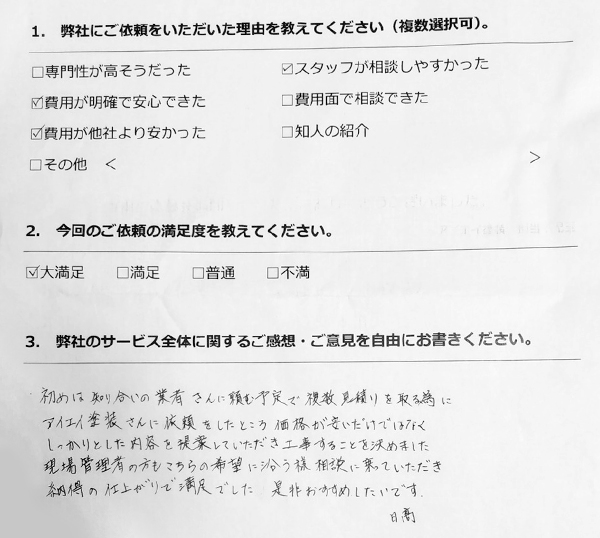 1. 弊社にご依頼をいただいた理由を教えてください（複数選択可）。
□専門性が高そうだった ☑スタッフが相談しやすかった
☑費用が明確で安心できた □費用面で相談できた
☑費用が他社より安かった □知人の紹介
□その他 < >
2. 今回のご依頼の満足度を教えてください。
☑大満足 □満足 □普通 □不満
3. 弊社のサービス全体に関するご感想・ご意見を自由にお書きください。
初めは知り合いの業者さんに頼む予定で複数見積りを取る為に
アイエイ塗装さんに依頼をしたところ価格が安いだけではなく
しっかりとした内容を提案していただき工事することを決めました
現場管理者の方もこちらの希望に沿う様相談に乗っていただき
納得の仕上がりで満足でした 是非おすすめしたいです.
日高